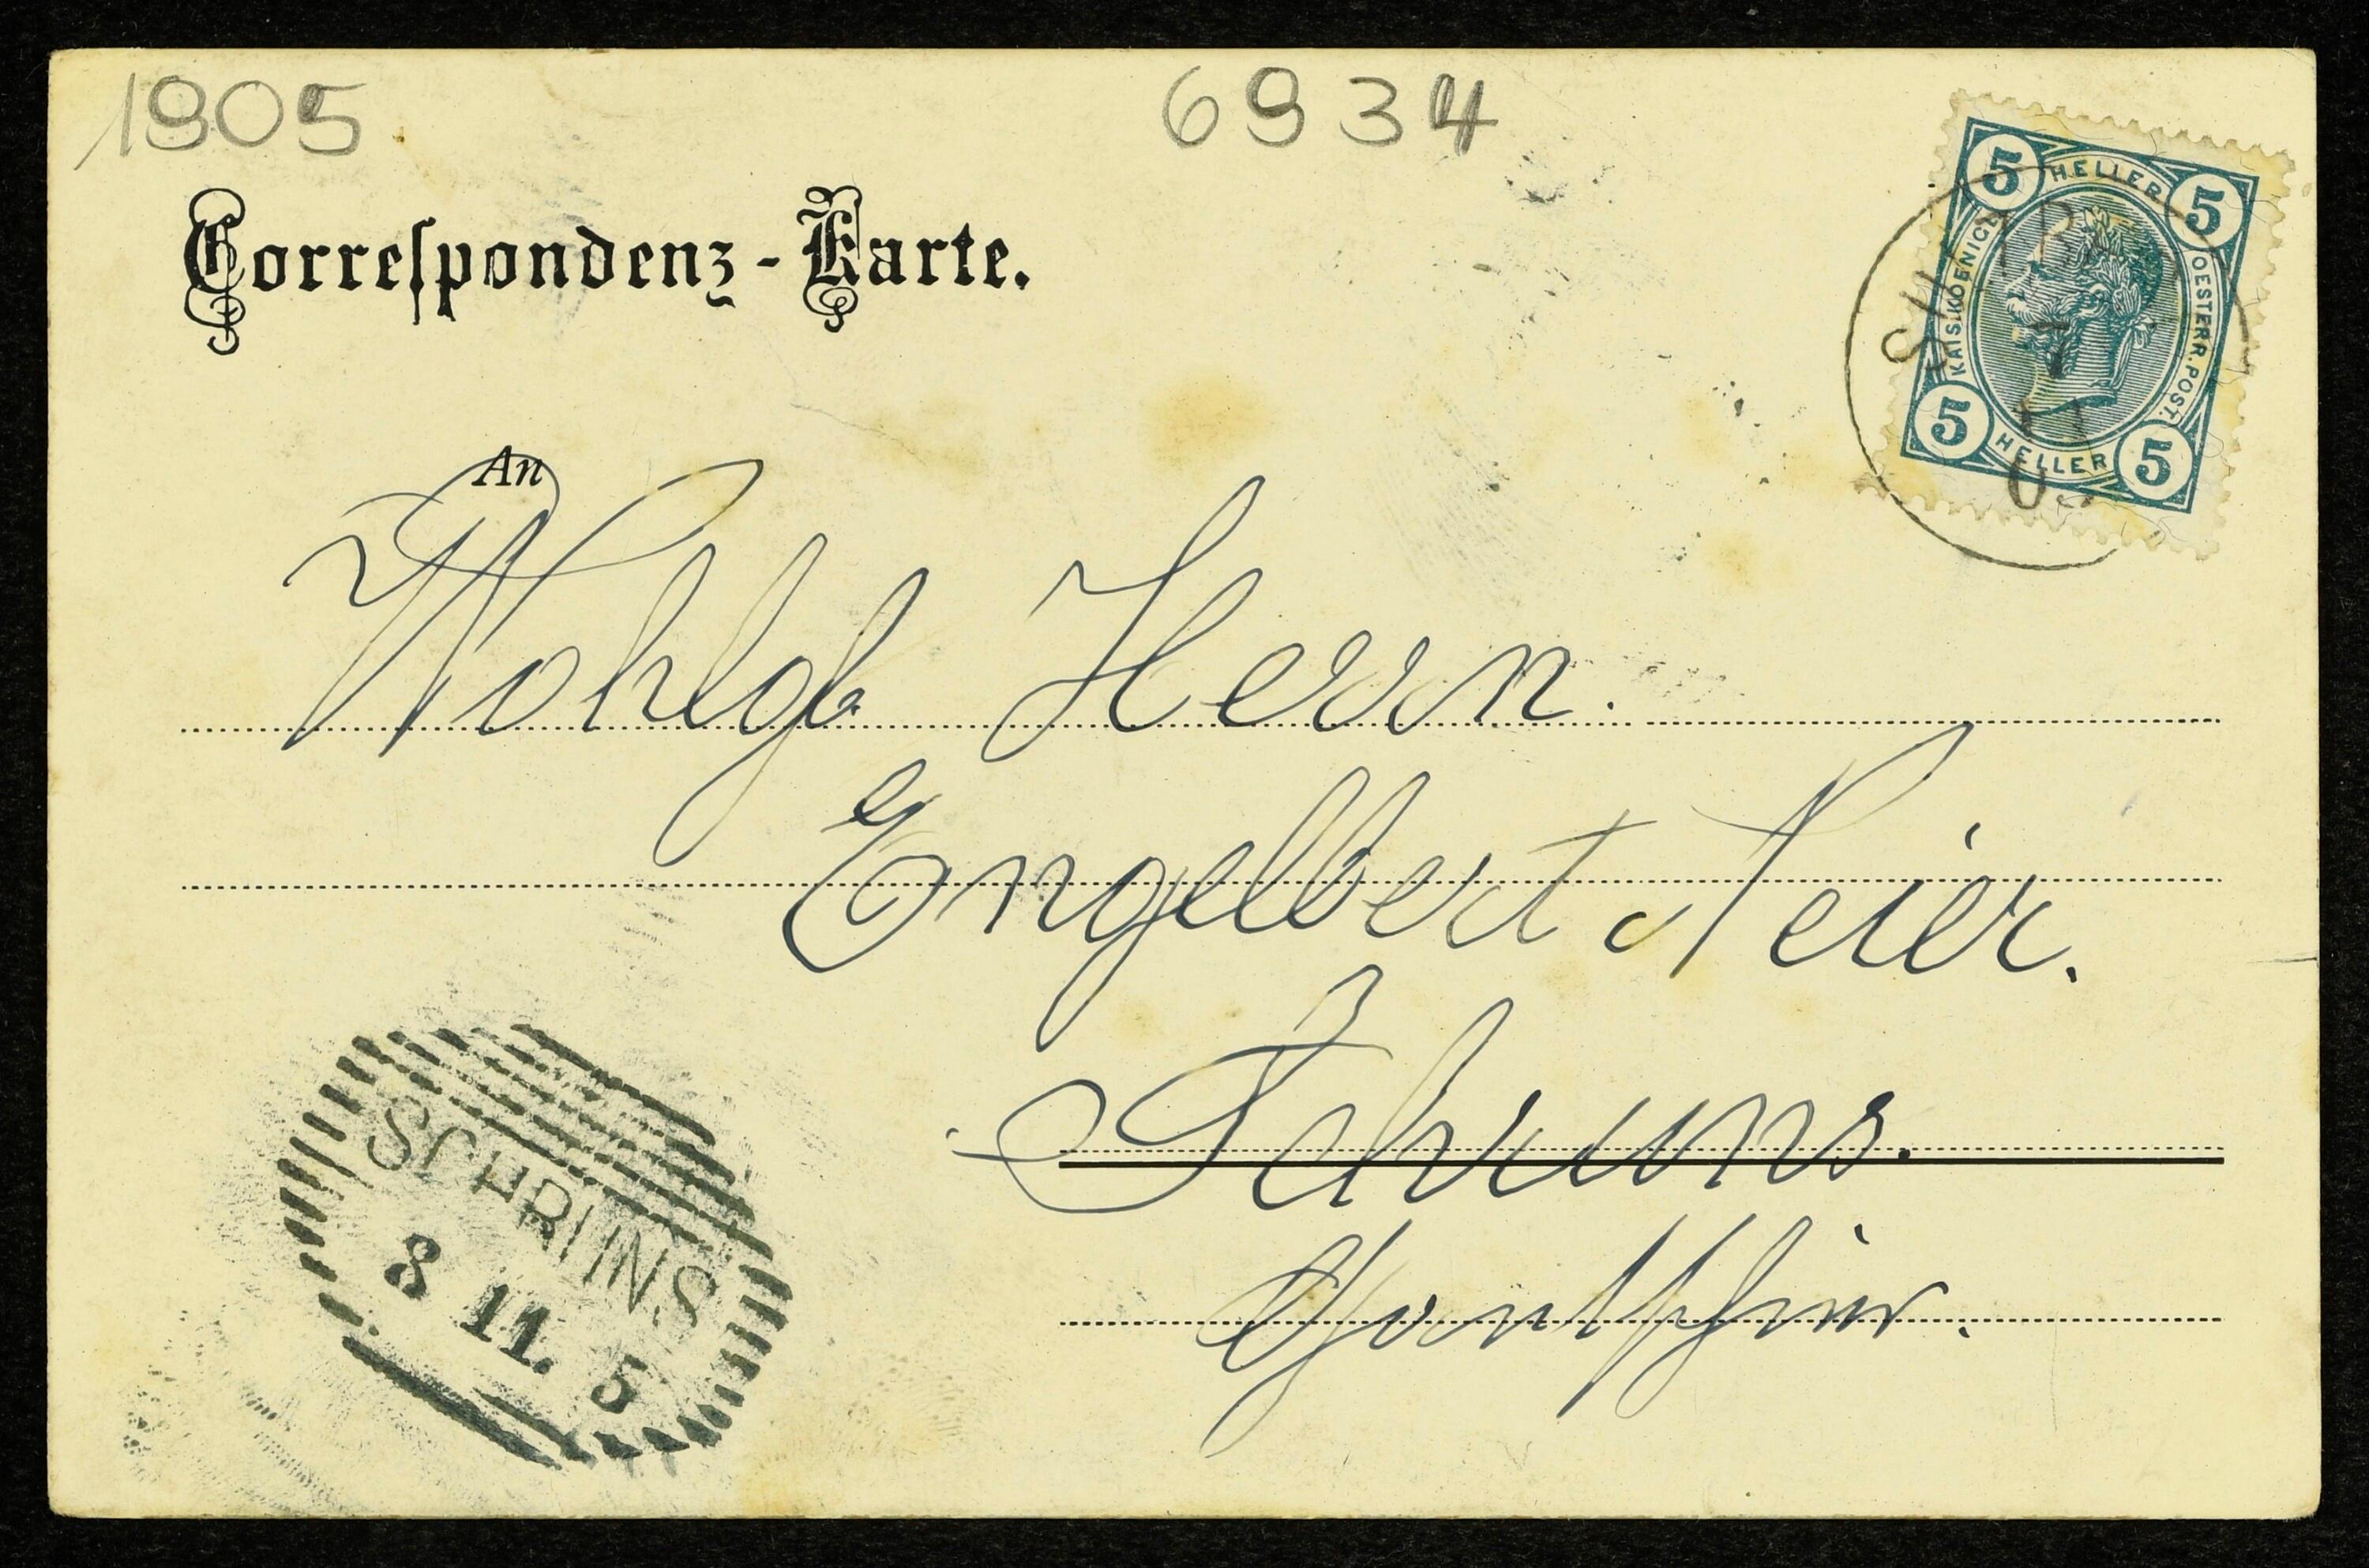 1905 6934
Correspondenz-Karte.
5 HELLER 5
KAIS. KOENIGL. OESTERR. POST.
5 HELLER 5
An
Wohlgb Herrn.
Engelbert Neier.
Schruns.
SCHRUNS
8 11. 5